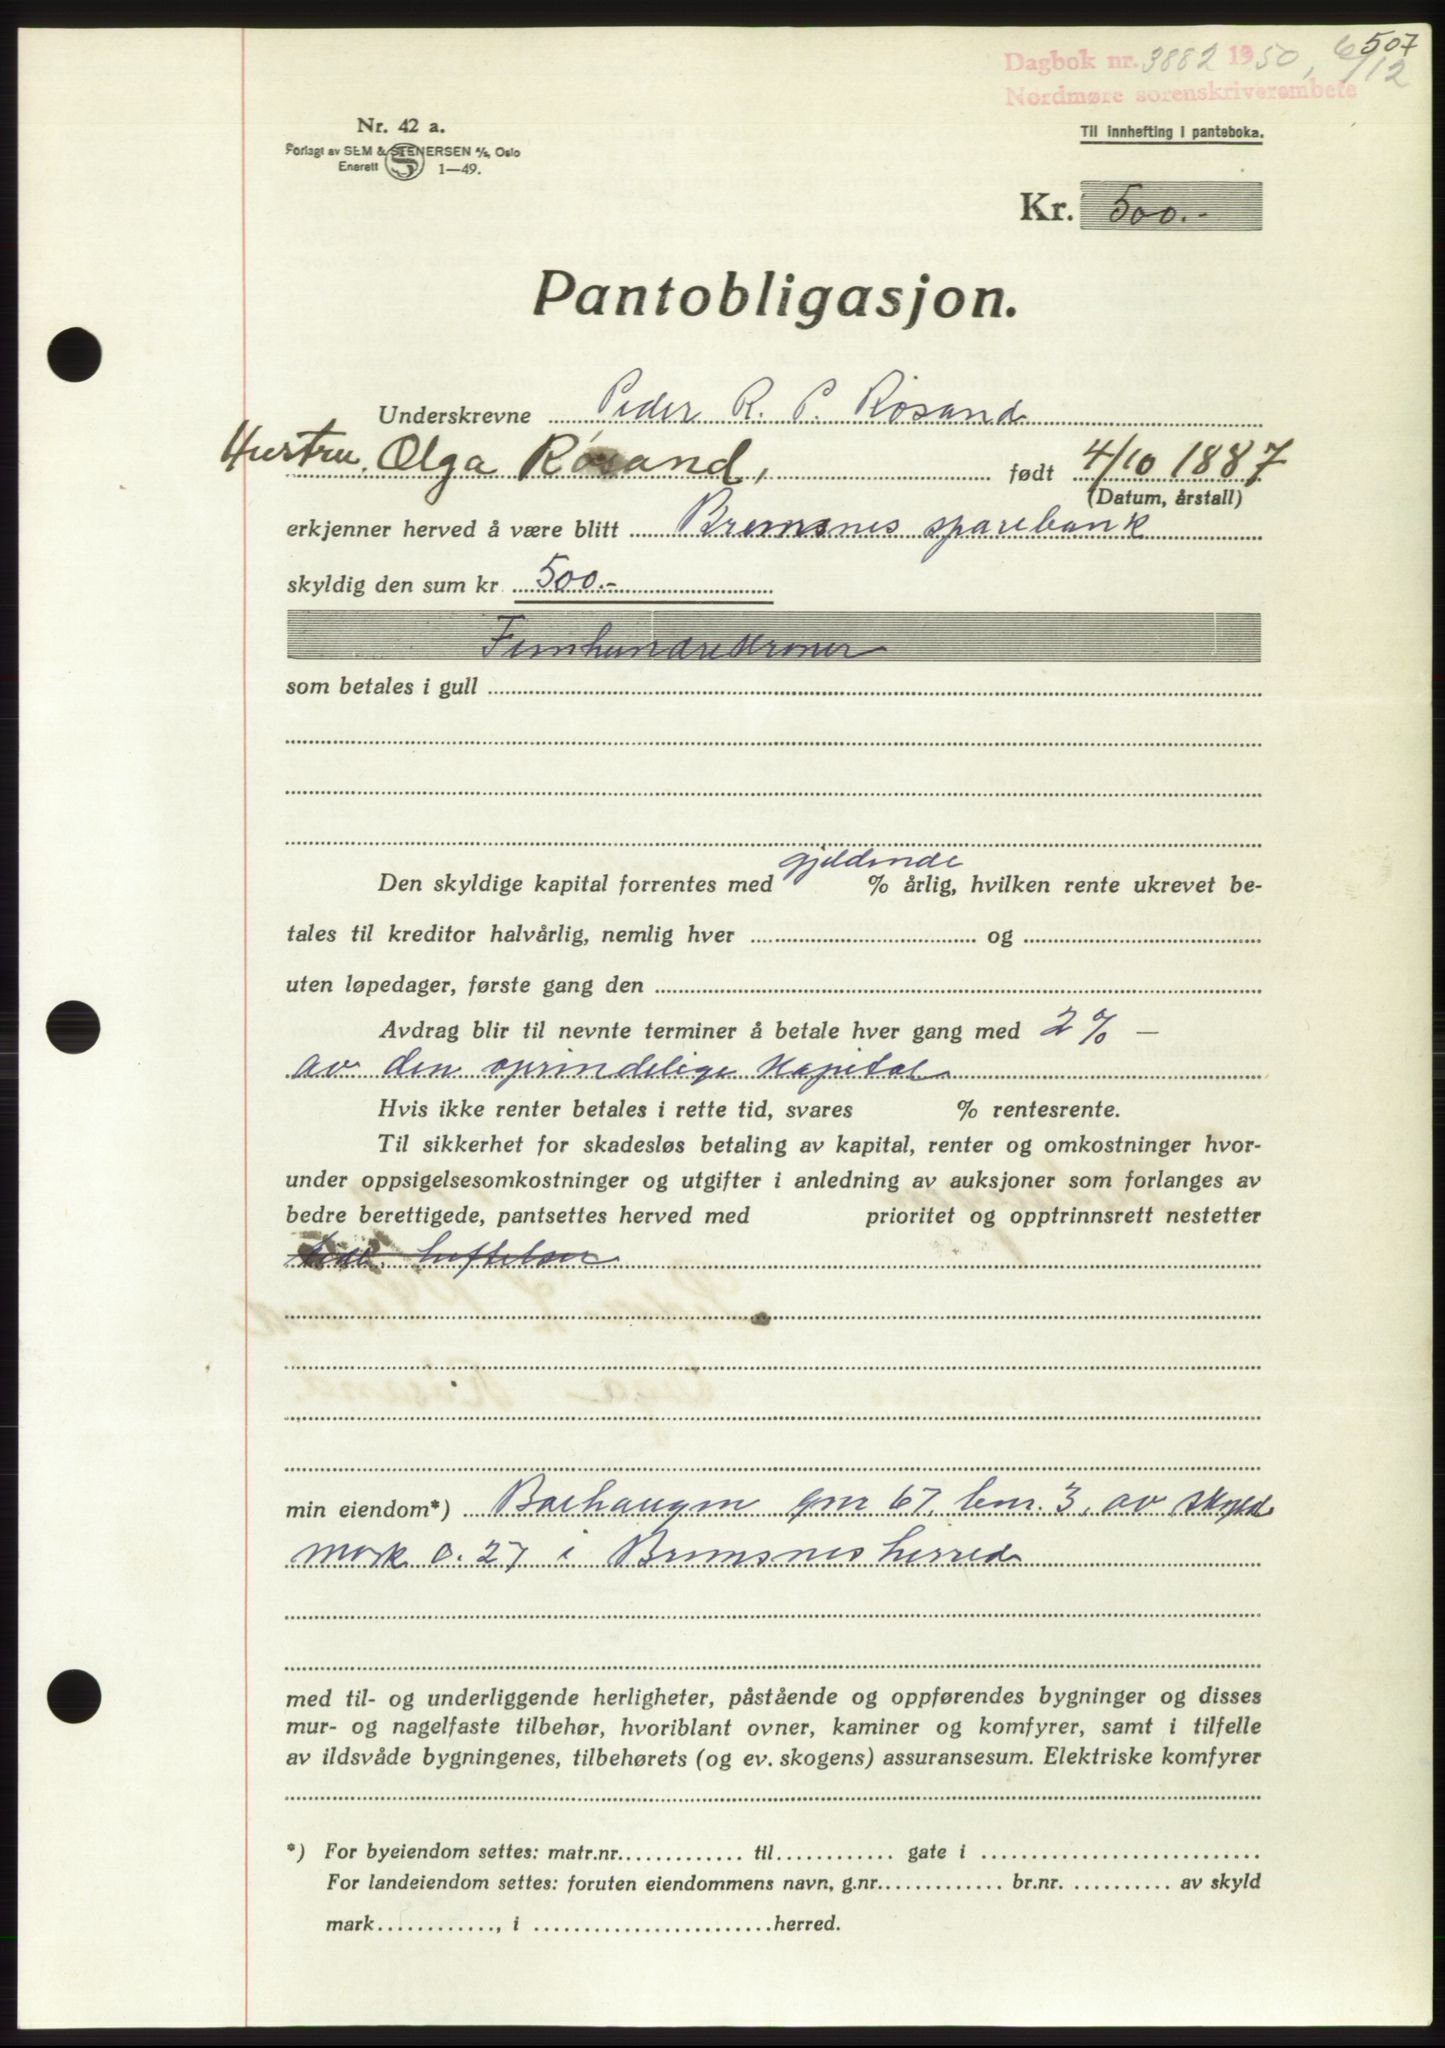 507
Dagbok nr. 3882 1950, 6/12
Nordmøre sorenskriverembete
Nr. 42 a.
Forlagt av SEM & STENERSEN A/S, Oslo
Enerett 1—49.
Til innhefting i panteboka.
Kr. 500.-
Pantobligasjon.
Underskrevne Peder R. P. Røsand
Hustru, Olga Røsand, født 4/10 1887
(Datum, årstall)
erkjenner herved å være blitt Bremsnes sparebank
skyldig den sum kr 500.-
Femhundrekroner
som betales i gull
gjeldende
Den skyldige kapital forrentes med % årlig, hvilken rente ukrevet be-
tales til kreditor halvårlig, nemlig hver og
uten løpedager, første gang den
Avdrag blir til nevnte terminer å betale hver gang med 2% —
av den oprindelige kapital
Hvis ikke renter betales i rette tid, svares % rentesrente.
Til sikkerhet for skadesløs betaling av kapital, renter og omkostninger hvor-
under oppsigelsesomkostninger og utgifter i anledning av auksjoner som forlanges av
bedre berettigede, pantsettes herved med prioritet og opptrinnsrett nestetter
heftelser
min eiendom*) Bachaugen gnr 67, bnr. 3, av skyld
mark 0.27 i Bremsnes herred
med til- og underliggende herligheter, påstående og oppførendes bygninger og disses
mur- og nagelfaste tilbehør, hvoriblant ovner, kaminer og komfyrer, samt i tilfelle
av ildsvåde bygningenes, tilbehørets (og ev. skogens) assuransesum. Elektriske komfyrer
*) For byeiendom settes: matr.nr. til gate i
For landeiendom settes: foruten eiendommens navn, g.nr. br.nr. av skyld
mark , i herred.